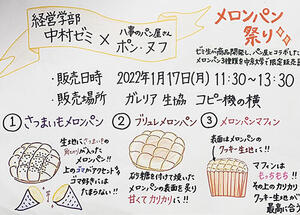 経営学部
中村ゼミ × 八事のパン屋さん
ポン・ヌフ
メロンパン
祭り
ゼミ生が商品開発し、パン屋とコラボした
メロンパン3種類を中京大学で限定販売
・販売日時 2022年1月17日(月) 11:30~13:30
・販売場所 ガレリア 生協 コピー機の横
① さつまいもメロンパン
生地にさつまいもの
角切りが入った
メロンパン!!
上のゴマがアクセント♪
ゴマ好きには
たまらない!!
② ブリュレメロンパン
ぶり糖を付けて焼いた
メロンパンの表面を炙り
甘くてカリカリに!!
③ メロンパンマフィン
表面はメロンパンの
クッキー生地に!!
マフィンは
もっちもち!!
その上のカリカリ
クッキー生地が
最高に合う